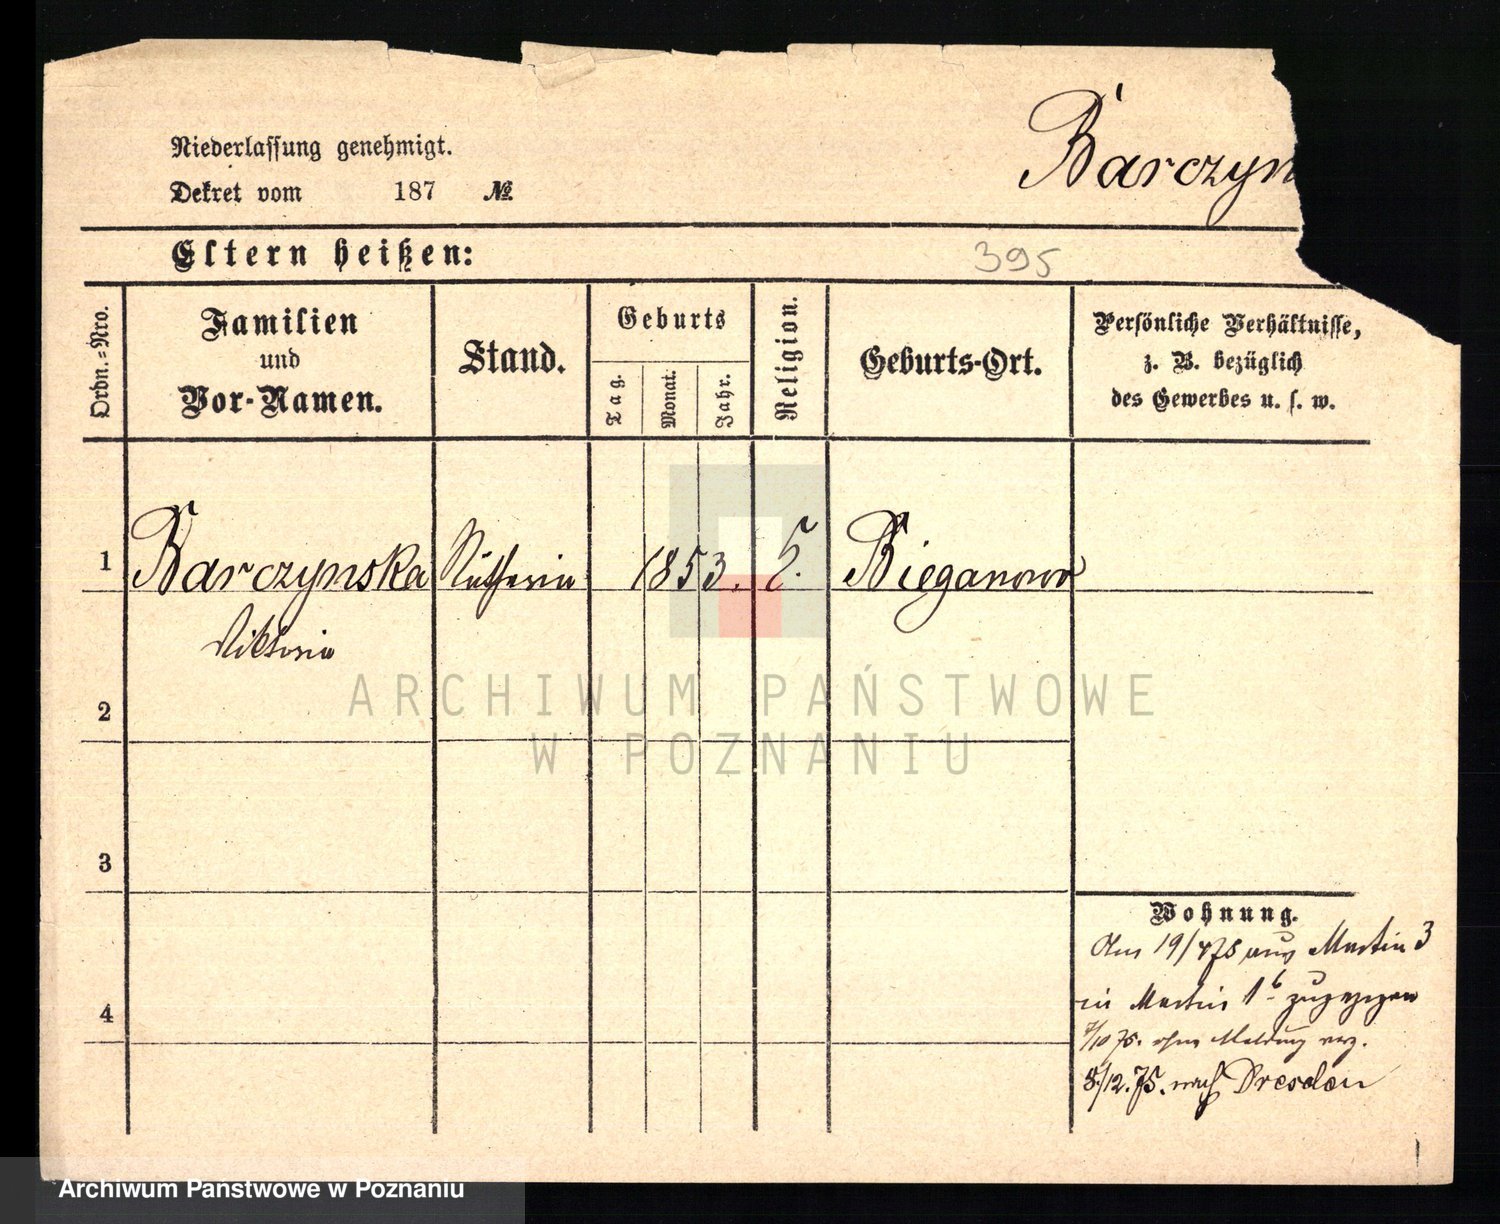 Barczyn
Niederlassung genehmigt.
Dekret vom 187 №
Eltern heißen:
395
Ordn.=Nro.
Familien
und
Vor-Namen.
Stand.
Geburts
Tag.
Monat.
Jahr.
Religion.
Geburts-Ort.
Persönliche Verhältnisse,
z. B. bezüglich
des Gewerbes u. s. w.
1 Barczynska Näherin 1853. Bieganowo
Viktoria
2
3
4
Wohnung.
Am 19/4 75 aus Martin 3
in Martin 1b zugezogen
7/10 75. ohne Meldung verz.
8/12.75. nach Dresden
ARCHIWUM PAŃSTWOWE
W POZNANIU
Archiwum Państwowe w Poznaniu